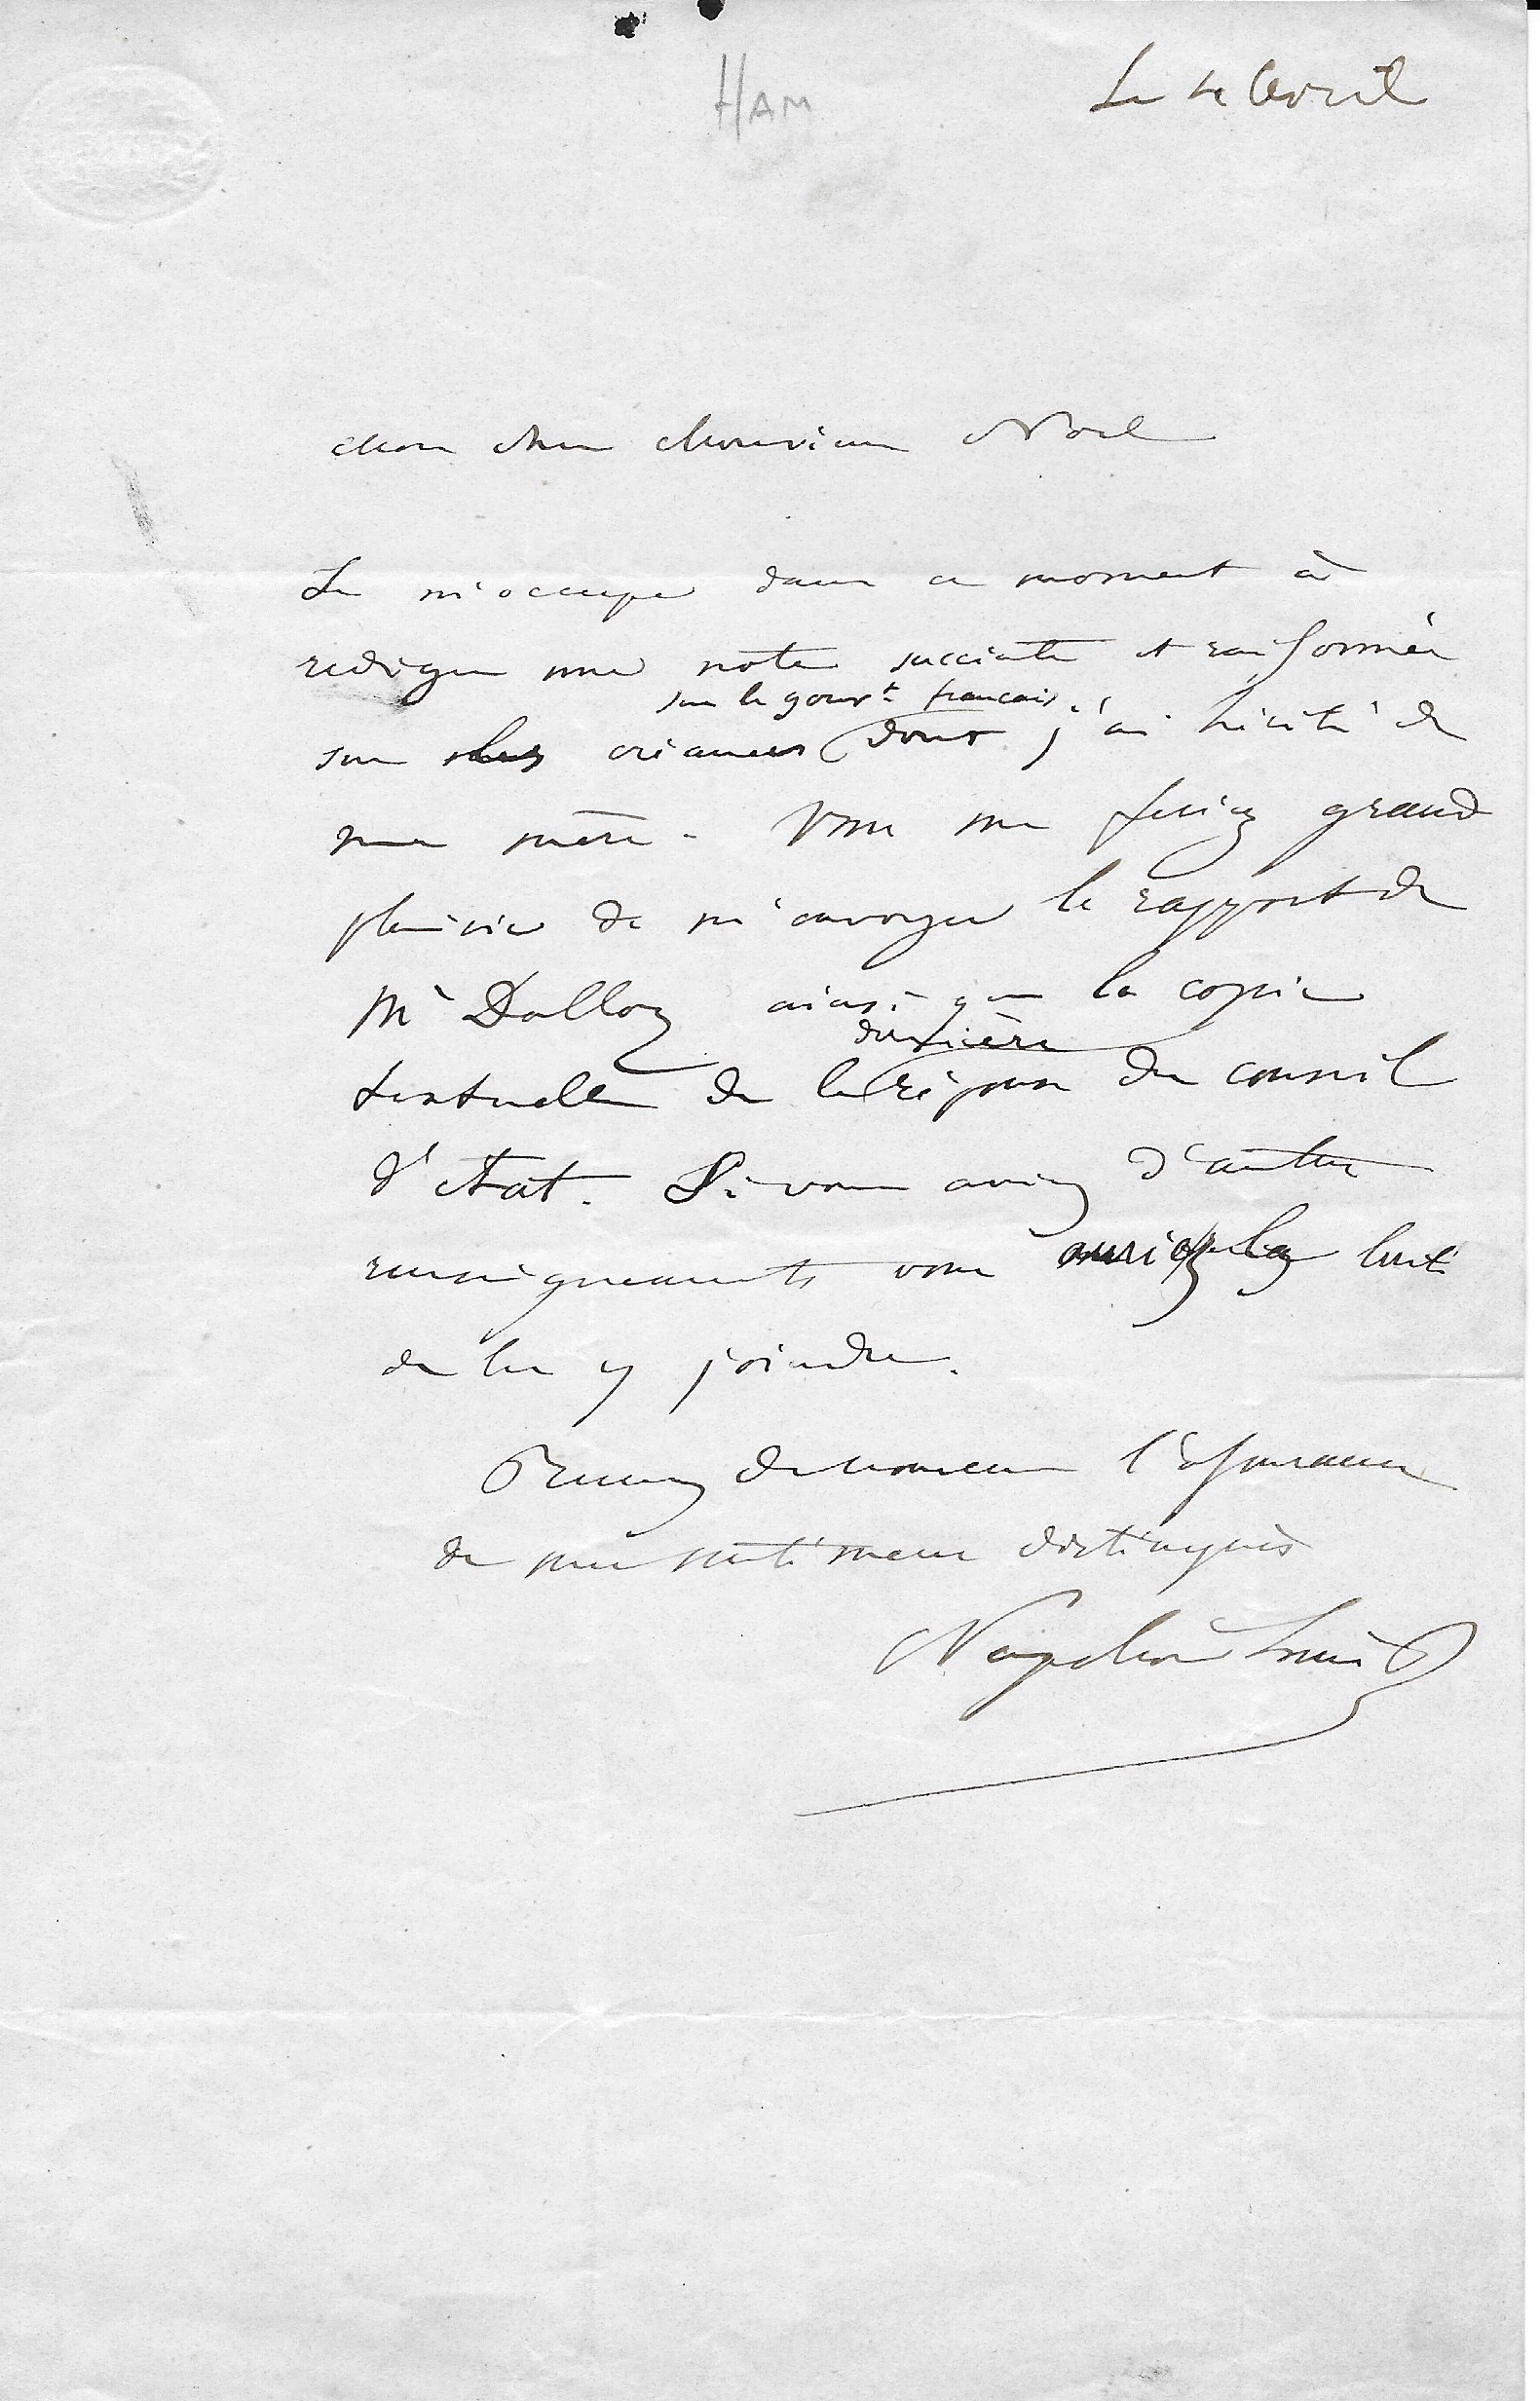 HAM
Le 4 Avril
Mon cher Monsieur Noel
Je m'occupe dans ce moment à
rediger une note succinte et raisonnée
sur le gouvt. francais
sur les créances dont j'ai hérité de
ma mère. Vous me feriez grand
plaisir de m'envoyer le rapport de
Mr Dalloz ainsi que la copie
dernière
textuelle de la réponse du conseil
d'état. Si vous aviez d'autres
renseignements vous auriez la bonté
de les y joindre.
Recevez de nouveau l'assurance
de mes sentimens distingués
Napoléon Louis B